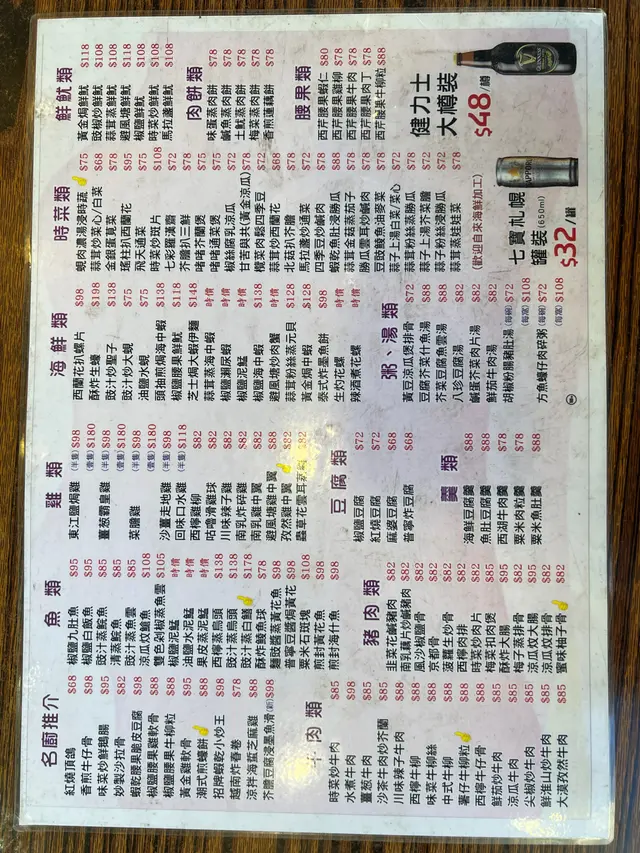 名廚推介
紅燒頂鴿 $68
香煎牛仔骨 $98
味菜炒鮮鵝腸 $95
炒製沙拉骨 $82
蝦乾腰果脆皮豆腐 $98
椒鹽腰果雞軟骨 $88
椒鹽腰果牛柳粒 $88
黃金雞軟骨 $95
潮式煎蠔餅 $88
招牌蝦乾小炒王 $98
越南炸春卷 $78
涼拌海蜇芝麻雞 $88
芥膽豆腐浸墨魚滑(新) $98
牛肉類
時菜炒牛肉 $85
水煮牛肉 $98
薑葱牛肉 $85
沙茶牛肉炒芥蘭 $85
川味辣子牛肉 $88
西檸牛柳 $88
味菜牛柳絲 $88
中式牛柳 $88
薯仔牛柳粒 $88
西檸牛仔骨 $88
鮮茄炒牛肉 $85
涼瓜牛肉 $85
尖椒炒牛肉 $85
鮮淮山炒牛肉 $85
大漠孜然牛肉 $85
魚類
椒鹽九肚魚 $95
椒鹽白飯魚 $95
豉汁蒸鯇魚 $85
清蒸鯇魚 $85
豉汁蒸魚雲 $85
涼瓜炆鰽魚 $108
雙色剁椒蒸魚雲 $105
椒鹽泥鯭 時價
油鹽水泥鯭 時價
果皮蒸泥鯭 時價
西檸蒸烏頭 $138
豉汁蒸烏頭 $138
豉汁蒸白鱔 $178
酥炸鯪魚球 $78
麵豉醬蒸黃花魚 $98
普寧豆醬焗黃花 $98
粟米石斑塊 $108
煎封黃花魚 $98
煎封海什魚 $98
豬肉類
韭菜花炒鹹豬肉 $82
南乳藕片炒鹹豬肉 $82
風沙椒鹽骨 $82
京都骨 $82
菠蘿生炒骨 $82
西檸肉排 $82
時菜炒肉片 $82
梅菜扣肉煲 $85
酥炸大腸 $95
梅子蒸排骨 $82
涼瓜炆大腸 $95
涼瓜炆排骨 $82
蜜味柚子骨 $82
雞類
東江鹽焗雞 (半隻) $98 (壹隻) $180
薑葱霸皇雞 (半隻) $98 (壹隻) $180
菜膽雞 (半隻) $98 (壹隻) $180
沙薑走地雞 (半隻) $98
回味口水雞 (半隻) $118
西檸雞柳 $82
咕嚕滑雞球 $82
川味辣子雞 $82
南乳炸碎雞 $82
南乳雞中翼 $82
避風塘雞中翼 $88
孜然雞中翼 $82
蟲草花雲耳蒸雞 $82
豆腐類
椒鹽豆腐 $72
紅燒豆腐 $72
麻婆豆腐 $68
普寧炸豆腐 $68
羹類
海鮮豆腐羹 $88
魚肚豆腐羹 $88
西湖牛肉羹 $78
粟米肉粒羹 $78
粟米魚肚羹 $88
海鮮類
西蘭花花螺片 $98
酥炸生蠔 $198
豉汁炒聖子 $138
豉汁炒大蜆 $75
油鹽水蜆 $75
頭抽煎焗海中蝦 $138
椒鹽腰果鮮魷 $118
芝士焗大蝦伊麵 $148
蒜茸蒸海中蝦 時價
椒鹽瀨尿蝦 時價
椒鹽泥鯭 時價
椒鹽海中蝦 $138
避風塘炒肉蟹 時價
蒜茸粉絲蒸元貝 $128
黃金焗中蝦 $128
泰式炸墨魚餅 $98
生灼花螺 時價
辣酒煮花螺 時價
粥、湯類
黃豆涼瓜煲排骨 $72
豆腐芥菜什魚湯 $88
芥菜豆腐魚雲湯 $88
八珍豆腐湯 $82
鹹蛋芥菜肉片湯 $82
鮮茄牛肉湯 $82
胡椒粉腸豬肚湯 (每碗) $72 (每窩) $108
方魚蠔仔肉碎粥 (每碗) $72 (每窩) $108
時菜類
蜆肉濃湯浸時蔬 $75
蒜茸炒菜心/白菜 $68
金銀蛋莧菜 $78
瑤柱扒西蘭花 $95
飛天通菜 $75
時菜炒斑片 $108
七彩羅漢齋 $72
芥膽扒三鮮 $78
啫啫芥蘭煲 $75
啫啫通菜煲 $75
椒絲腐乳涼瓜 $72
甘苦與共(黃金涼瓜) $78
欖菜肉鬆四季豆 $72
蒜茸炒西蘭花 $68
北菇扒芥膽 $78
馬拉盞炒通菜 $72
四季豆炒鹹肉 $78
蝦乾魚肚浸勝瓜 $88
蒜茸金菇蒸茄子 $78
勝瓜雲耳炒鹹肉 $78
豆豉鯪魚油麥菜 $78
蒜子上湯白菜/菜心 $72
蒜茸粉絲蒸勝瓜 $78
蒜子上湯芥菜膽 $72
蒜子粉絲浸勝瓜 $72
蒜茸蒸娃娃菜 $78
(歡迎自來海鮮加工)
七寶札幌
罐裝(650ml)
$32/罐
鮮魷類
黃金焗鮮魷 $118
豉椒炒鮮魷 $108
蒜茸蒸鮮魷 $108
避風塘鮮魷 $118
椒鹽鮮魷 $108
時菜炒鮮魷 $108
馬拉盞鮮魷 $108
肉餅類
味蛋蒸肉餅 $78
鹹魚蒸肉餅 $78
土魷蒸肉餅 $78
梅菜蒸肉餅 $78
香煎蓮藕餅 $78
腰果類
西芹腰果蝦仁 $80
西芹腰果雞柳 $78
西芹腰果牛肉 $78
西芹腰果肉丁 $78
西芹腰果牛柳粒 $88
健力士
大樽裝
$48/樽